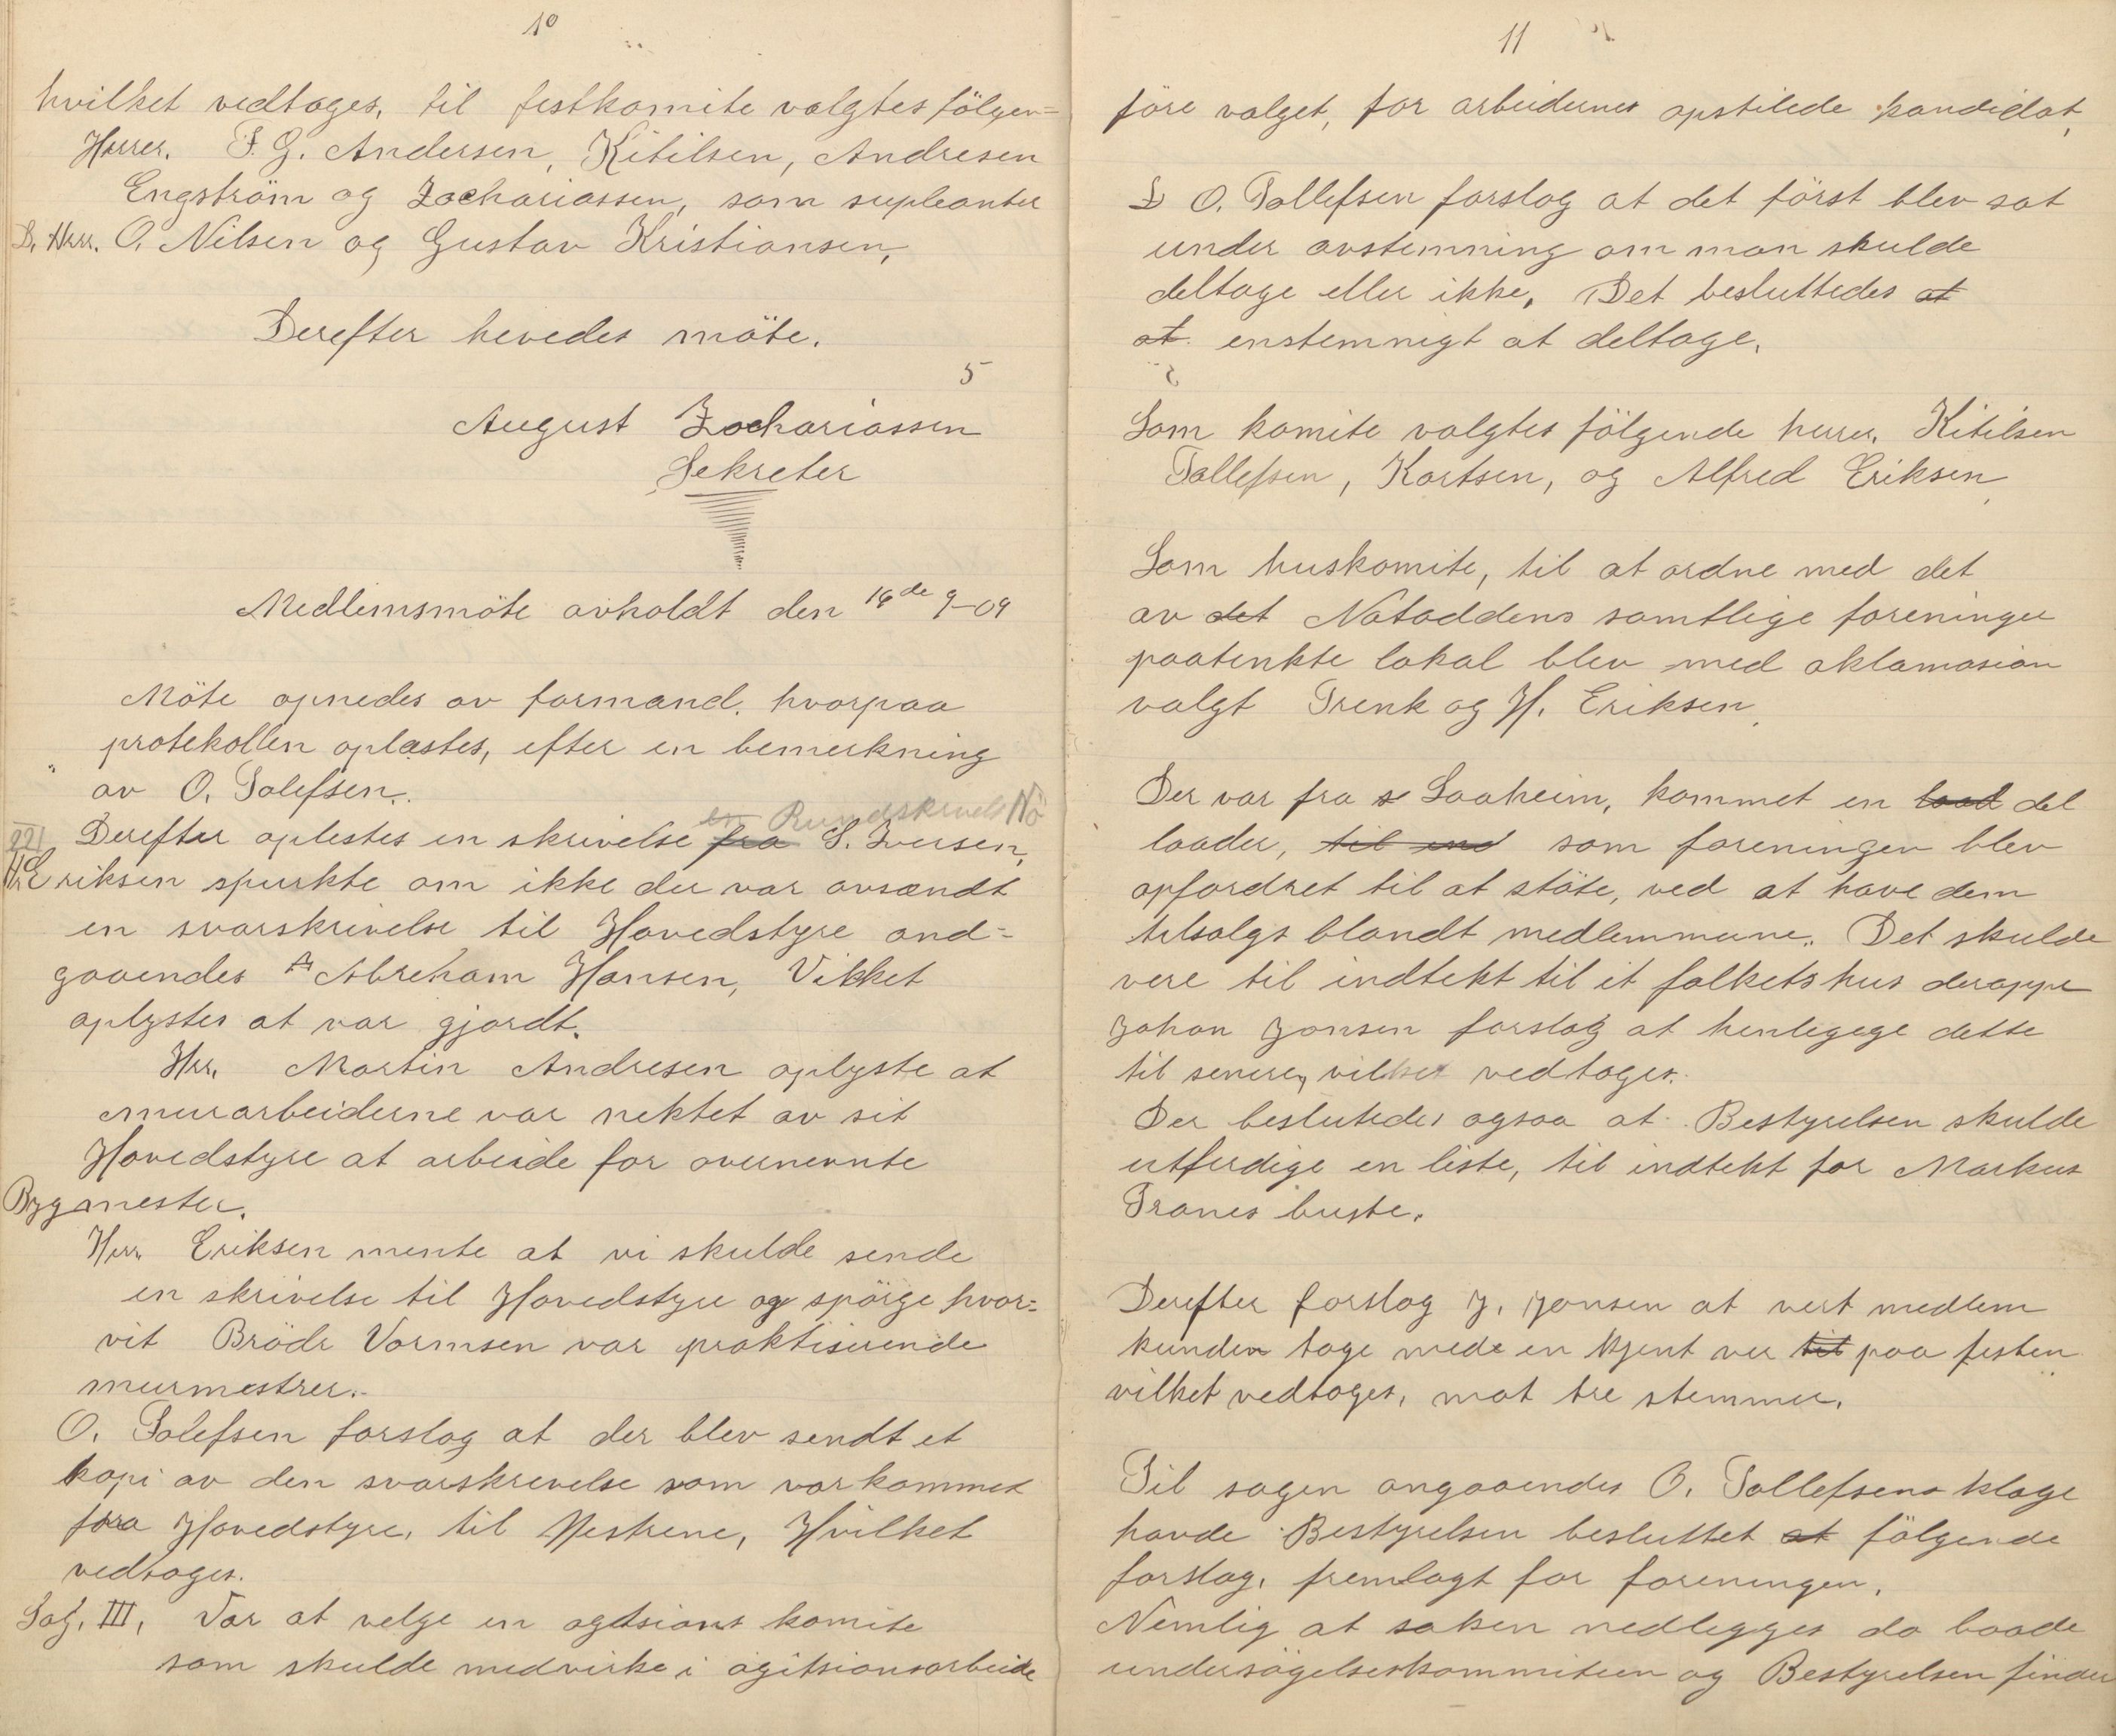 10
hvilket vedtoges, til festkomite valgtes fölgen=
Herrer. F. G. Andersen, Kitilsen, Andresen
Engström og Zachariassen, som supleanter
D. Herr. O. Nilsen og Gustav Kristiansen,
Derefter hevedes möte.
5
August Zachariassen
Sekreter
Medlemsmöte avholdt den 16de 9-09
Möte opnedes av formand. hvorpaa
protekollen oplæstes, efter en bemerkning
av O. Tolefsen.
en Rundskrivels No
221 Derefter oplestes en skrivelse fra S. Iversen,
Hr Eriksen spurkte om ikke der var avsændt
en svarskrivelse til Hovedstyre and=
gaaendes A Abreham Hansen, Vikket
oplystes at var gjordt.
Hrr. Martin Andresen oplyste at
murarbeiderne var nektet av sit
Hovedstyre at arbeide for overnevnte
Bygmester.
Herr. Eriksen mente at vi skulde sende
en skrivelse til Hovedstyre og spörge hvor=
vit Brödr Vormsen var praktiserende
murmestrer.
O. Tolefsen forslog at der blev sendt et
kopi av den svarskrevelse som var kommet
fra Hovedstyre, til Mestrene, Hvilket
vedtoges.
Sag. III, Var at velge en agitsions komite
som skulde medvirke i agitsionsarbeide
11
före valget, for arbeidernes opstilede kandidat,
O. Tollefsen forslog at det först blev sat
under avstemning om man skulde
deltage eller ikke, Det besluttedes at
at enstemnigt at deltage.
Som komite valgtes fölgende herrer, Kitilsen
Tollefsen, Kortsen, og Alfred Eriksen,
Som huskomite, til at ordne med det
av det Notoddens samtlige foreninger
paatenkte lokal blev med aklamasion
valgt Trenk og H. Eriksen,
Der var fra s Saaheim, kommet en lood del
lodder, til ind som foreningen blev
opfordret til at stöte, ved at have dem
tilsalgs blandt medlemmene. Det skulde
vere til indtekt til et folkets hus deroppe
Johan Jonsen forslog at henligege dette
til senere, vilket vedtoges.
Der beslutedes ogsaa at Bestyrelsen skulde
utferdige en liste, til indtekt for Markus
Tranes buste.
Derefter forslog J. Jonsen at vert medlem
kunden tage mede en kjent ver til paa festen
vilket vedtoges, mot tre stemmer.
Til sagen angaaendes O. Tollefsens klage
havde Bestyrelsen besluttet at fölgende
forslag, fremlagt for foreningen.
Nemlig at saken nedlegges da baade
undersögelseskommiteen og Bestyrelsen finder